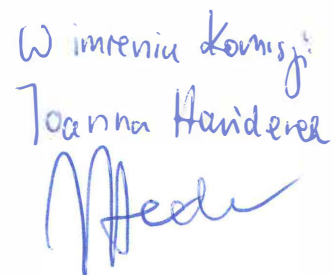 W imieniu Komisji
Joanna Handerek